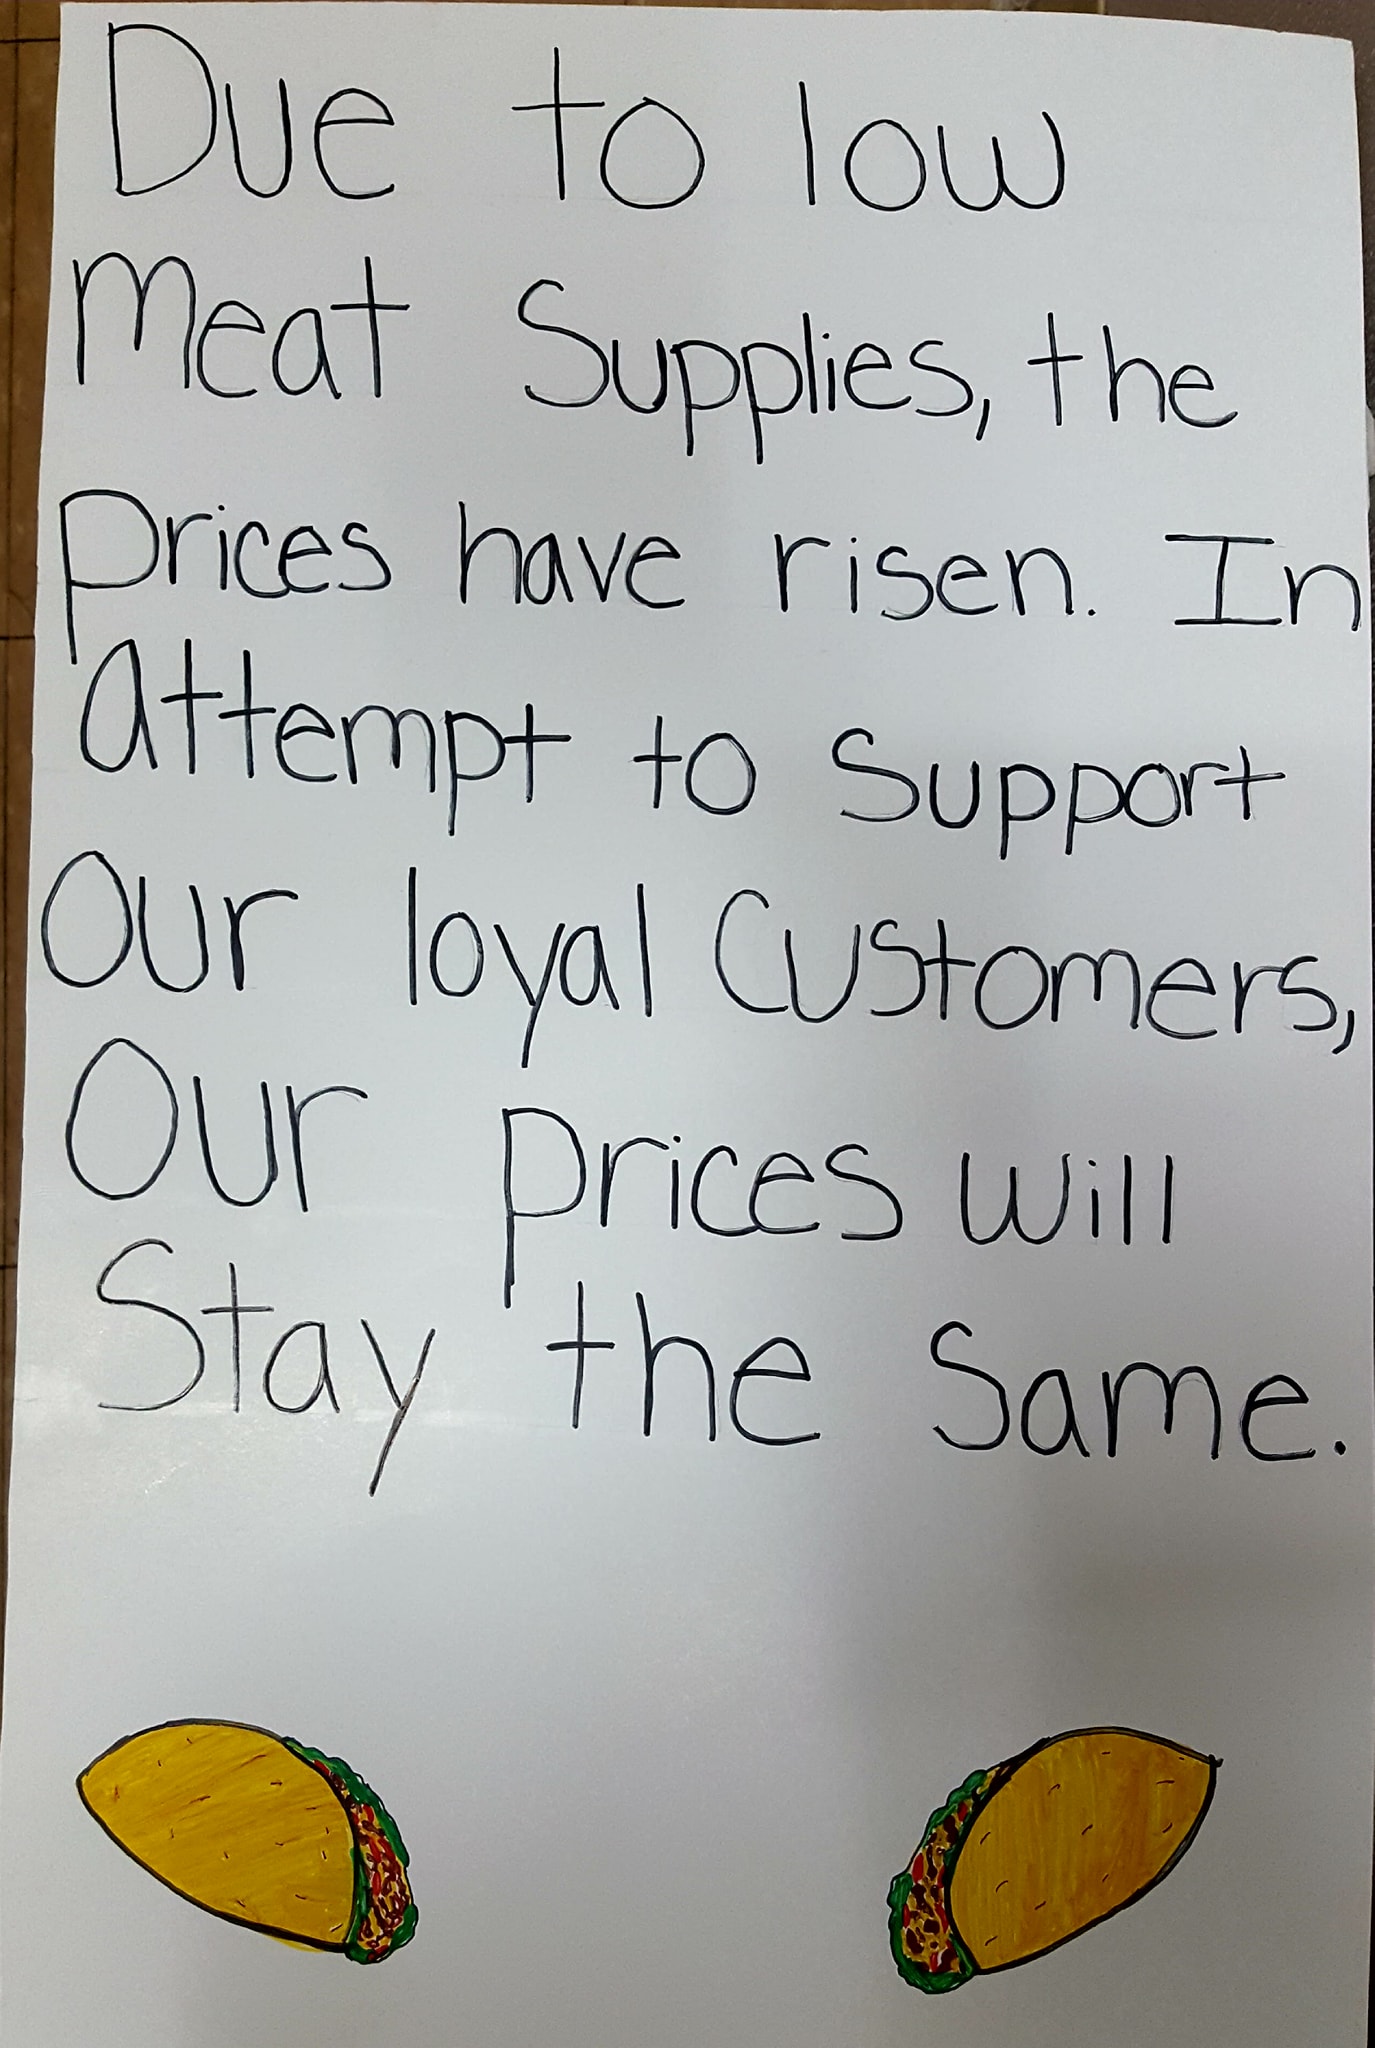 Due to low
Meat Supplies, the
Prices have risen. In
attempt to Support
Our loyal Customers,
Our prices will
Stay the Same.